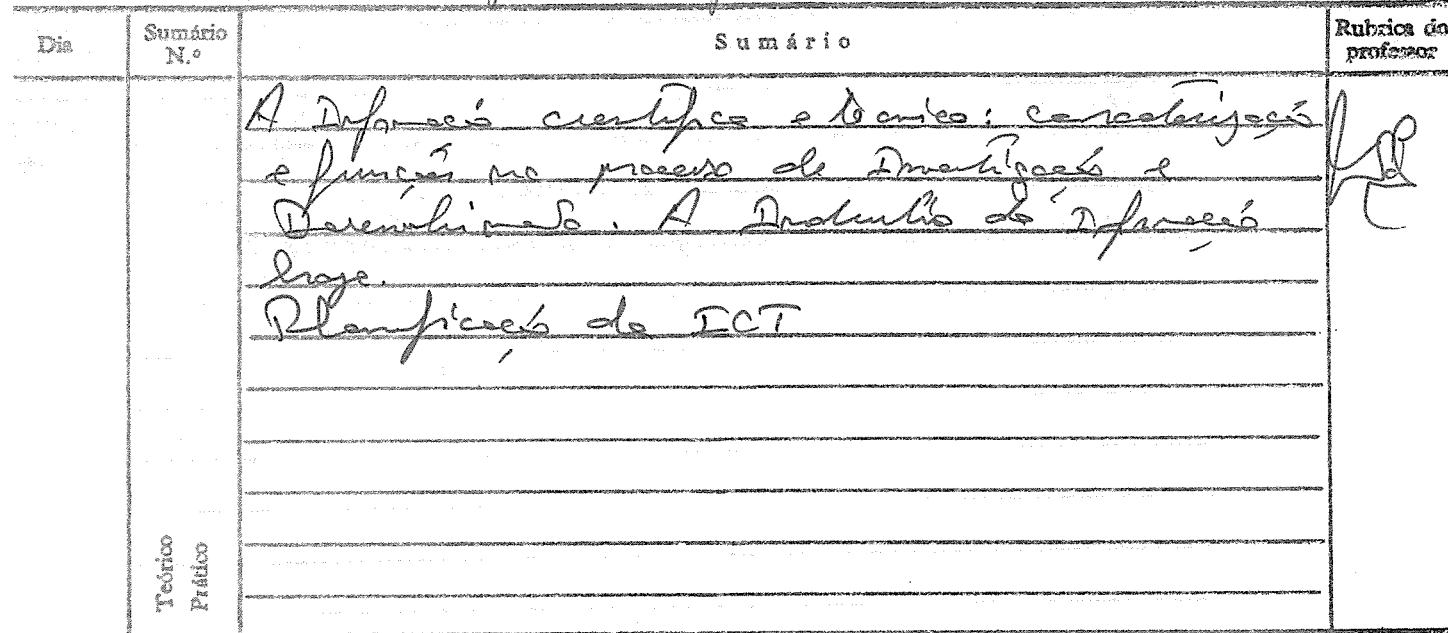 Dia Sumário N.º Sumário Rubrica do professor
A Informação científica e técnica: caracterização
e funções no processo de Investigação e
Desenvolvimento. A Indústria da Informação
hoje.
Planificação da ICT
Teórico
Prático